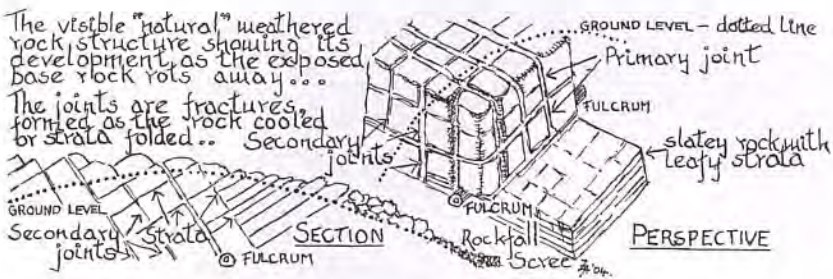 The visible "natural" weathered
rock structure showing its
development as the exposed
base rock rots away...
The joints are fractures,
formed as the rock cooled
or strata folded..
GROUND LEVEL – dotted line
Primary joint
FULCRUM
Secondary
joints
slatey rock with
leafy strata
GROUND LEVEL
Secondary
joints
Strata
FULCRUM
SECTION
FULCRUM
Rockfall
Scree
'04.
PERSPECTIVE